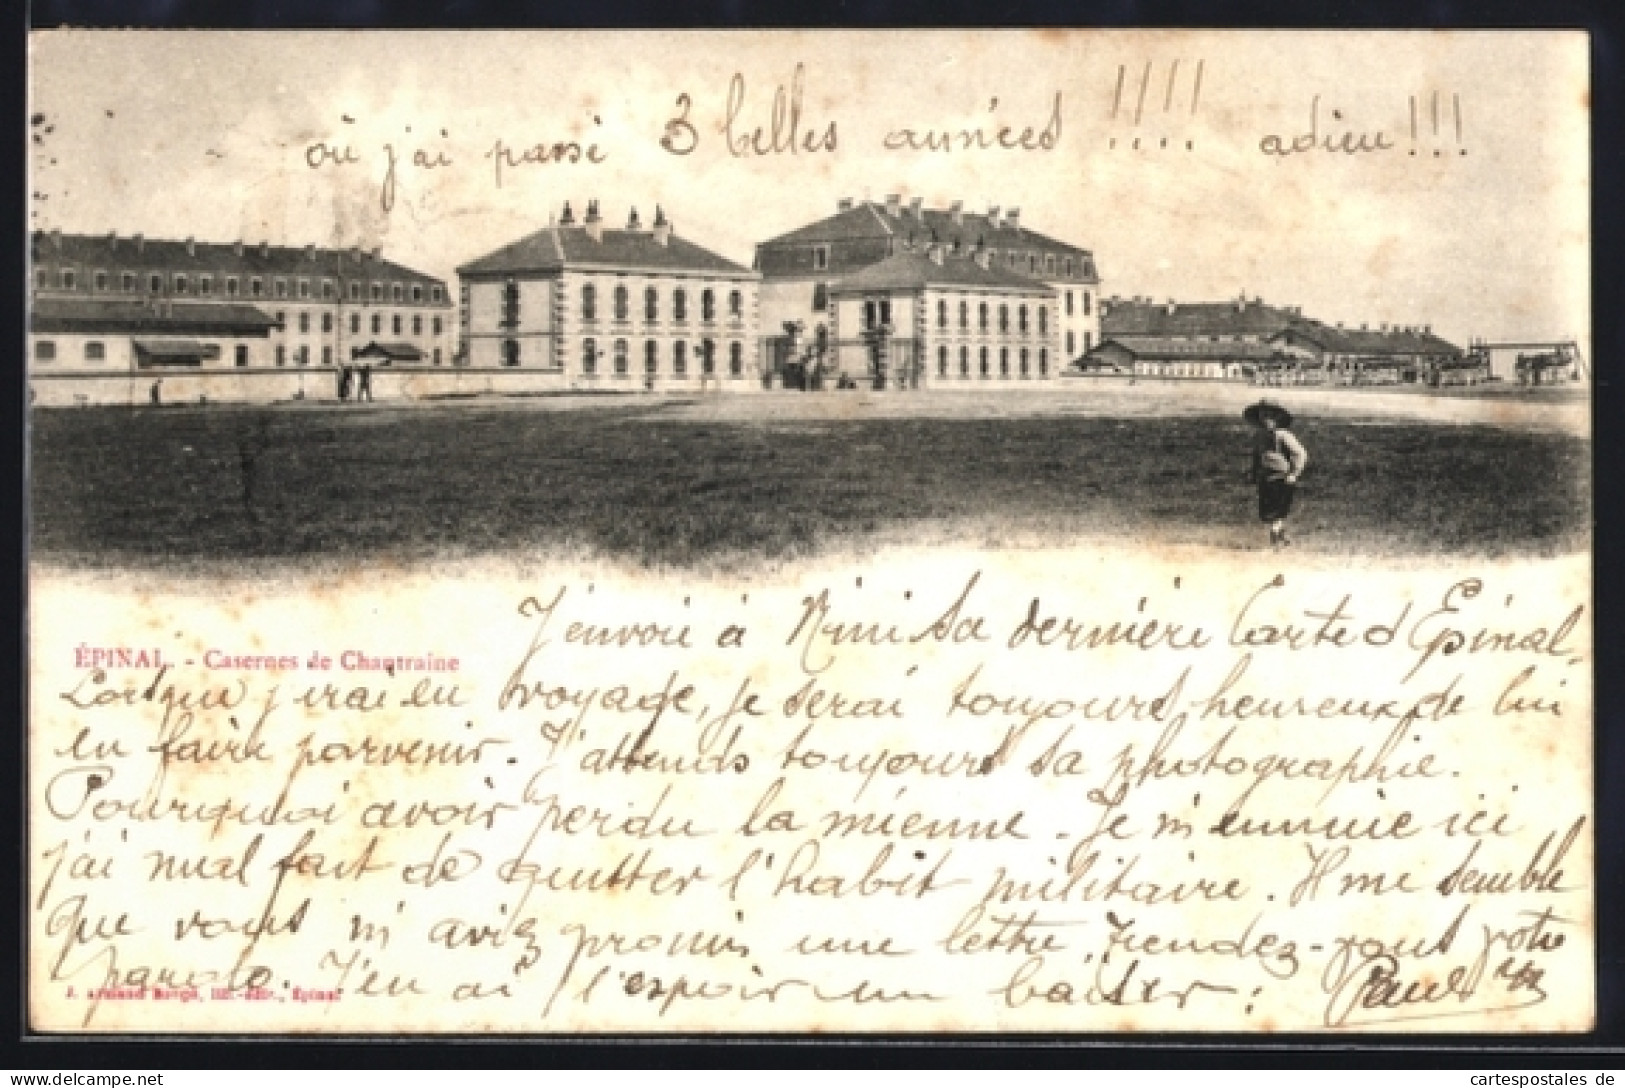 où j'ai passé 3 belles années !!!! adieu !!!
J'envoie à Mimi sa dernière Carte d'Epinal.
ÉPINAL. - Casernes de Chantraine
Lorsque j'irai en voyage, je serai toujours heureux de lui
en faire parvenir. J'attends toujours sa photographie.
Pourquoi avoir perdu la mienne. Je m'ennuie ici
j'ai mal fait de quitter l'habit militaire. Il me semble
que vous m'aviez promis une lettre, rendez-vous votre
parole. J'en ai l'espoir un baiser : Paul